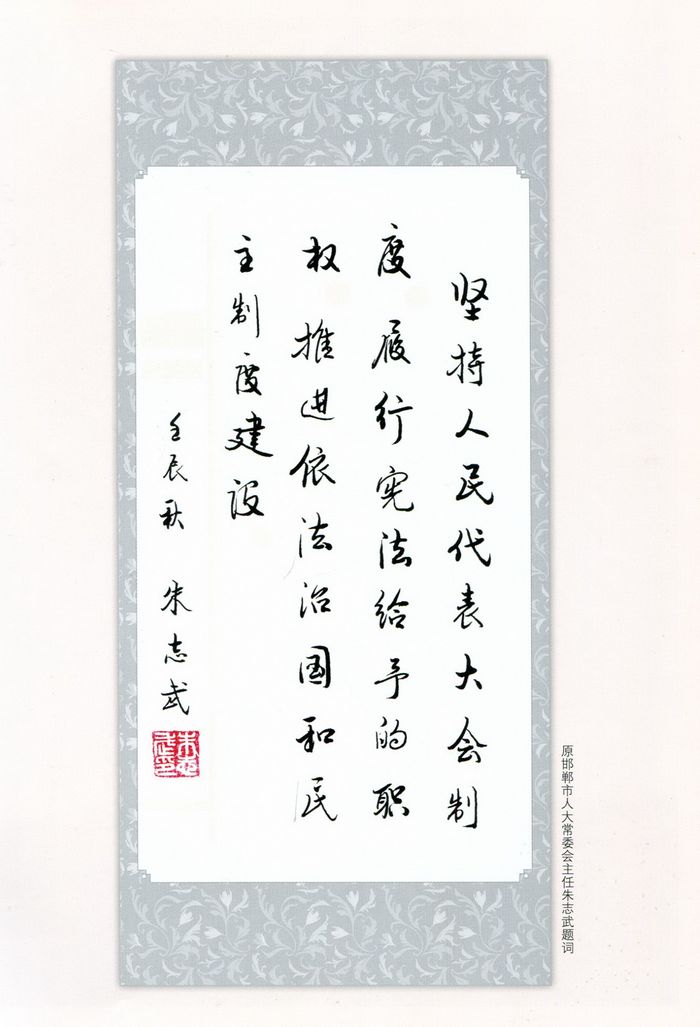 坚持人民代表大会制
度履行宪法给予的职
权推进依法治国和民
主制度建设
壬辰秋 朱志武
原邯郸市人大常委会主任朱志武题词